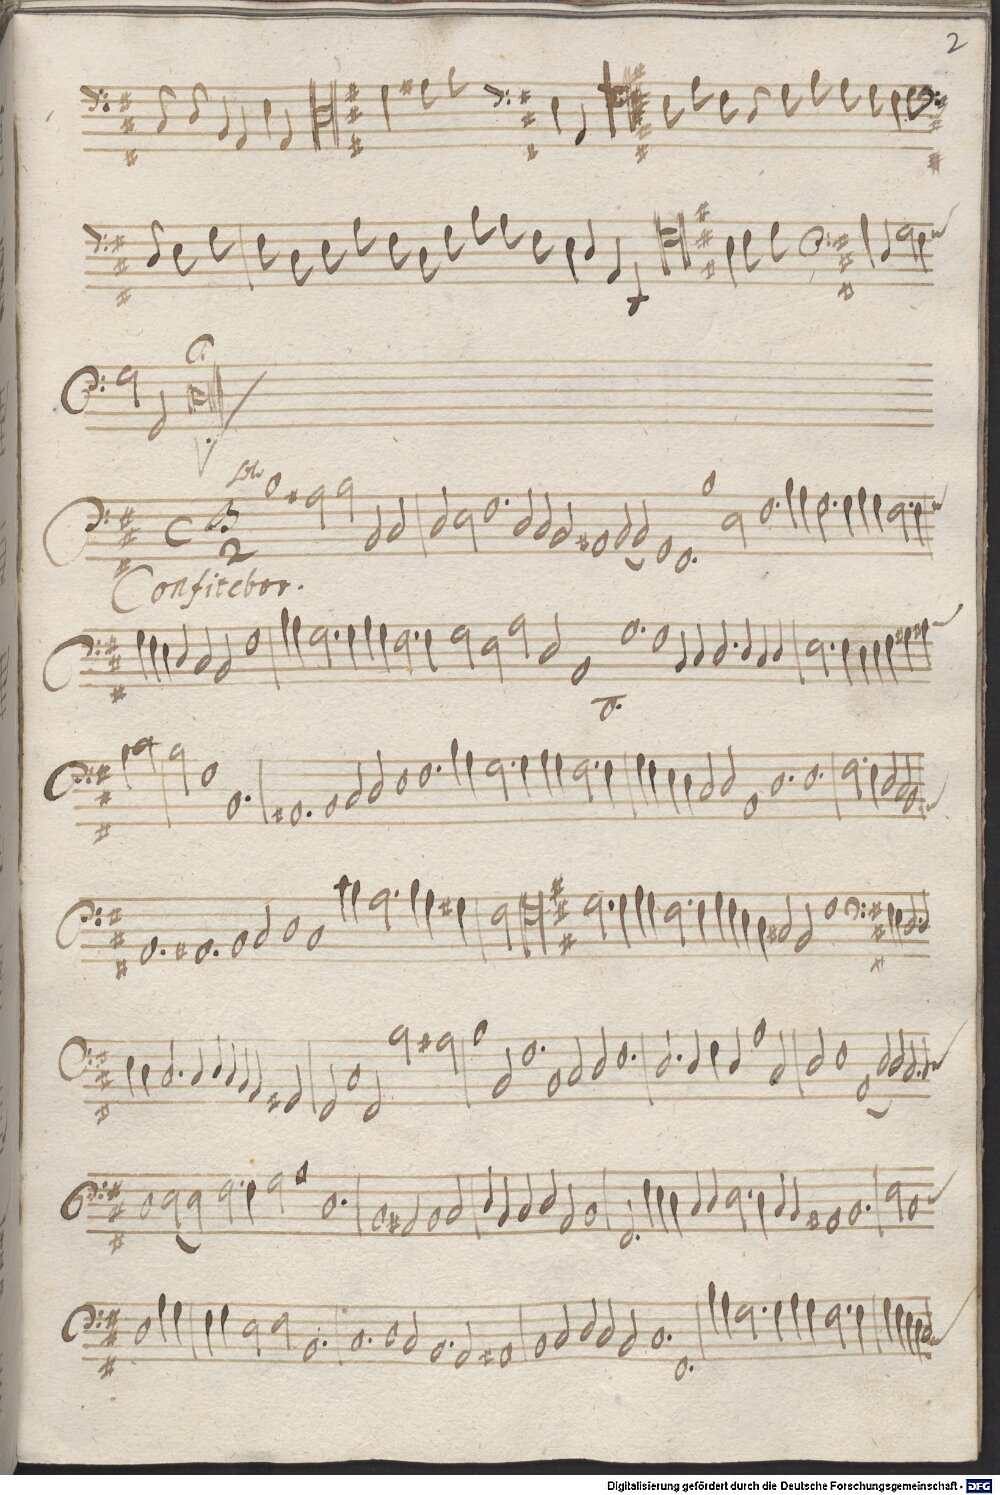 2
C 3
2
Confitebor.
Digitalisierung gefördert durch die Deutsche Forschungsgemeinschaft - DFG